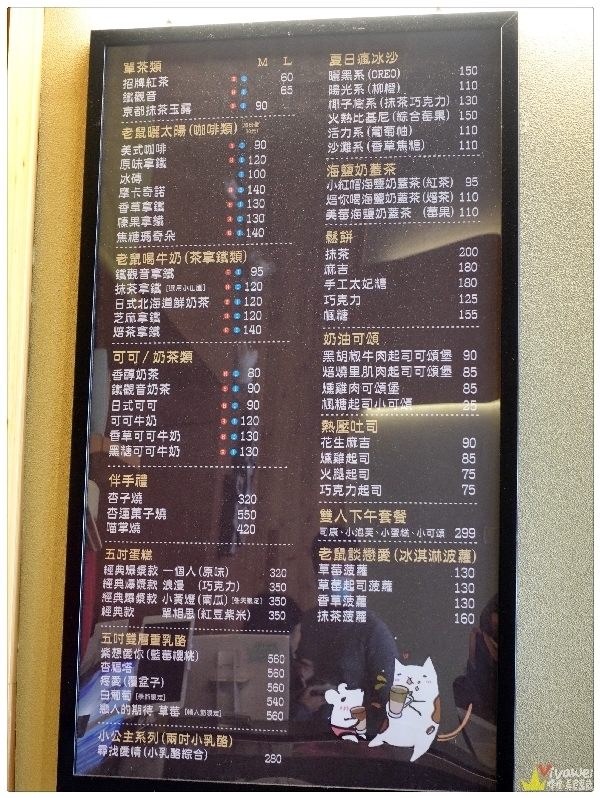 單茶類 M L
招牌紅茶 60
鐵觀音 65
京都抹茶玉露 90
老鼠曬太陽(咖啡類)
美式咖啡 90
原味拿鐵 120
冰磚 100
摩卡奇諾 140
香草拿鐵 130
榛果拿鐵 130
焦糖瑪奇朵 140
老鼠喝牛奶(茶拿鐵類)
鐵觀音拿鐵 95
抹茶拿鐵 120
日式北海道鮮奶茶 120
芝麻拿鐵 120
焙茶拿鐵 140
可可/奶茶類
香醇奶茶 80
鐵觀音奶茶 90
日式可可 90
可可牛奶 120
香草可可牛奶 130
黑糖可可牛奶 130
伴手禮
杏子燒 320
杏運菓子燒 550
喵掌燒 420
五吋蛋糕
經典爆漿款 一個人(原味) 320
經典爆漿款 浪漫 (巧克力) 350
經典爆漿款 小黃燈(南瓜) 350
經典款 單相思(紅豆紫米) 350
五吋雙層重乳酪
紫想愛你(藍莓櫻桃) 560
杏福塔 560
疼愛(覆盆子) 560
白葡萄 540
戀人的期待 草莓 560
小公主系列(兩吋小乳酪)
尋找愛情(小乳酪綜合) 280
夏日瘋冰沙
曬黑系(OREO) 150
陽光系(柳橙) 110
椰子房系(抹茶巧克力) 130
火熱比基尼(綜合莓果) 150
活力系(葡萄柚) 110
沙灘系(香草焦糖) 110
海鹽奶蓋茶
小紅帽海鹽奶蓋茶(紅茶) 95
焙你喝海鹽奶蓋茶(焙茶) 110
美莓海鹽奶蓋茶 (莓果) 110
鬆餅
抹茶 200
麻吉 180
手工太妃糖 180
巧克力 125
楓糖 155
奶油可頌
黑胡椒牛肉起司可頌堡 90
焙燒里肌肉起司可頌堡 85
燻雞肉可頌堡 85
楓糖起司小可頌 25
熱壓吐司
花生麻吉 90
燻雞起司 85
火腿起司 75
巧克力起司 75
雙人下午套餐
司康、小泡芙、小蛋糕、小可頌 299
老鼠談戀愛(冰淇淋波蘿)
草莓菠蘿 130
草莓起司菠蘿 130
香草菠蘿 130
抹茶菠蘿 160
Vivawei